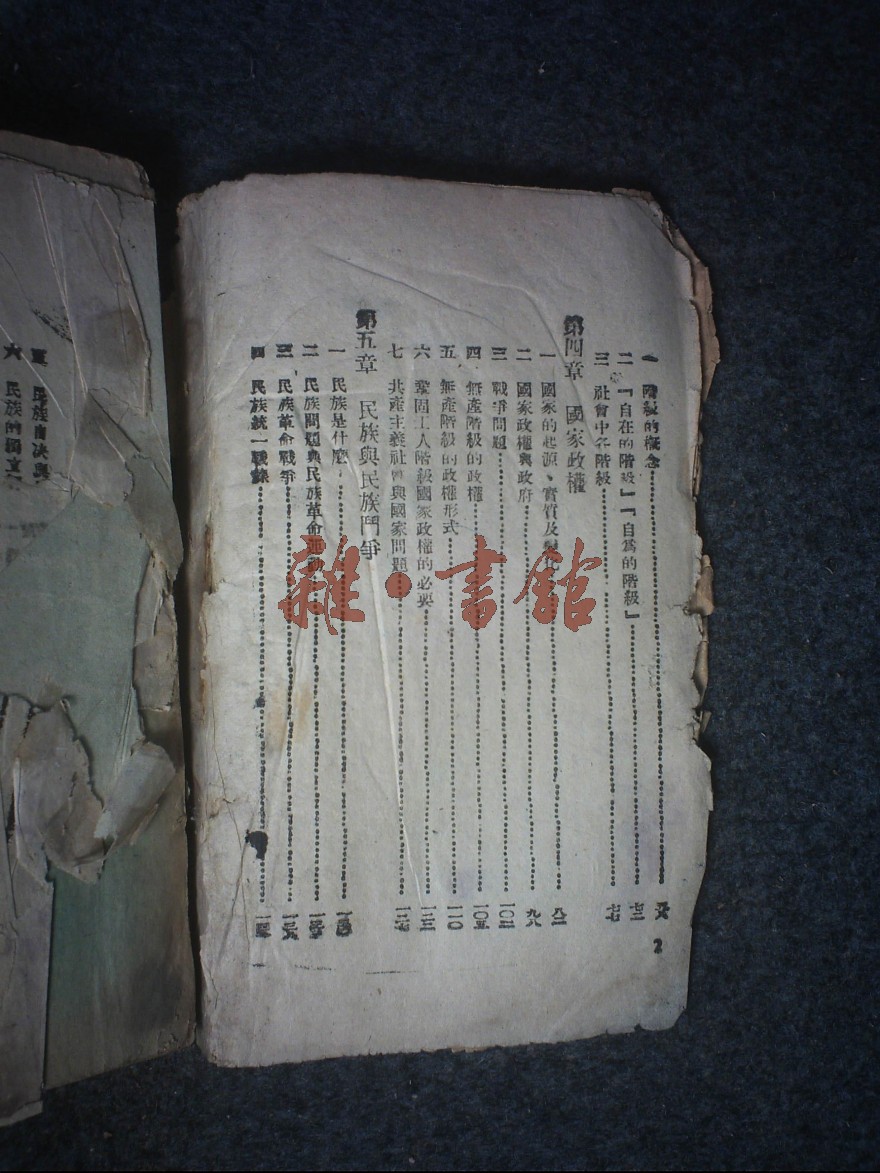 一 階級的概念
二 『自在的階級』『自爲的階級』 七三
三 社會中各階級 七七
第四章 國家政權
一 國家的起源、實質及變化 八二
二 國家政權與政府 九八
三 戰爭問題 一〇二
四 無產階級的政權 一〇五
五 無產階級的政權形式 一一〇
六 鞏固工人階級國家政權的必要 一二三
七 共產主義社會與國家問題
第五章 民族與民族鬥爭
一 民族是什麼
二 民族問題與民族革命運動
三 民族革命戰爭
四 民族統一戰線
2
五 民族自決與
六 民族的獨立
雜·書館